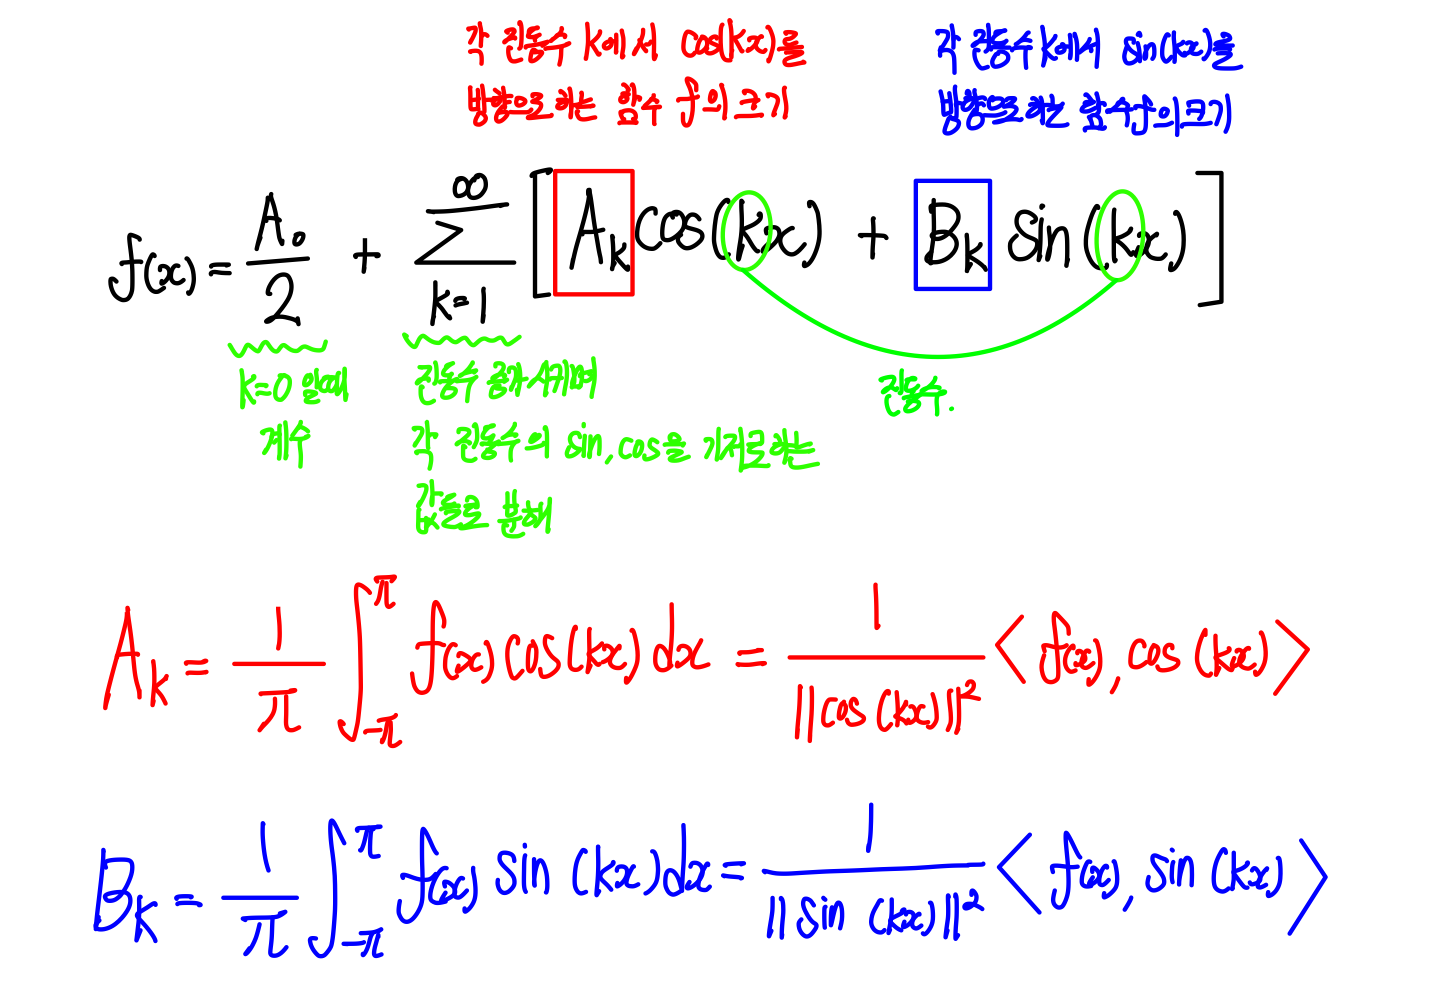 각 진동수 k에서 cos(kx)를
방향으로 하는 함수 f의 크기
각 진동수 k에서 sin(kx)을
방향으로 하는 함수 f의 크기
f(x) = A₀/2 + ∑_{k=1}^{∞} [A_k cos(kx) + B_k sin(kx)]
k=0 일때
계수
진동수 증가시키며
각 진동수의 sin, cos을 기저로하는
값들로 분해
진동수.
A_k = 1/π ∫_{-π}^{π} f(x) cos(kx) dx = 1/||cos(kx)||² <f(x), cos(kx)>
B_k = 1/π ∫_{-π}^{π} f(x) sin(kx) dx = 1/||sin(kx)||² <f(x), sin(kx)>